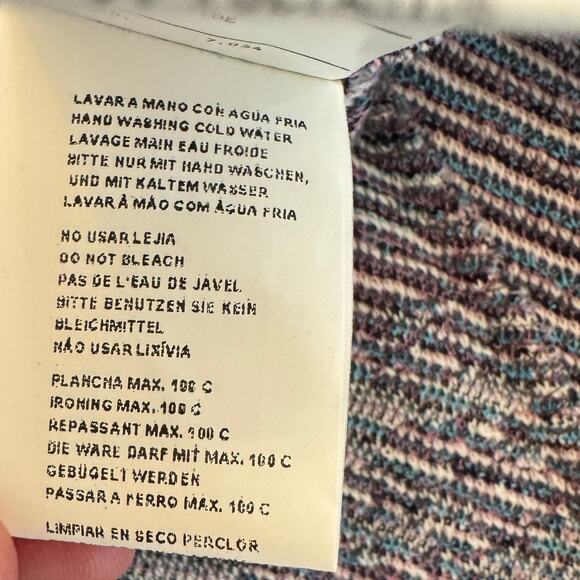 DE
7.054
LAVAR A MANO CON AGUA FRIA
HAND WASHING COLD WATER
LAVAGE MAIN EAU FROIDE
BITTE NUR MIT HAND WASCHEN,
UND MIT KALTEM WASSER
LAVAR À MÃO COM ÀGUA FRIA
NO USAR LEJIA
DO NOT BLEACH
PAS DE L'EAU DE JAVEL
BITTE BENUTZEN SIE KEIN
BLEICHMITTEL
NÃO USAR LIXÍVIA
PLANCHA MAX. 100 C
IRONING MAX. 100 C
REPASSANT MAX. 100 C
DIE WARE DARF MIT MAX. 100 C
GEBÜGELT WERDEN
PASSAR A FERRO MÁX. 100 C
LIMPIAR EN SECO PERCLOR